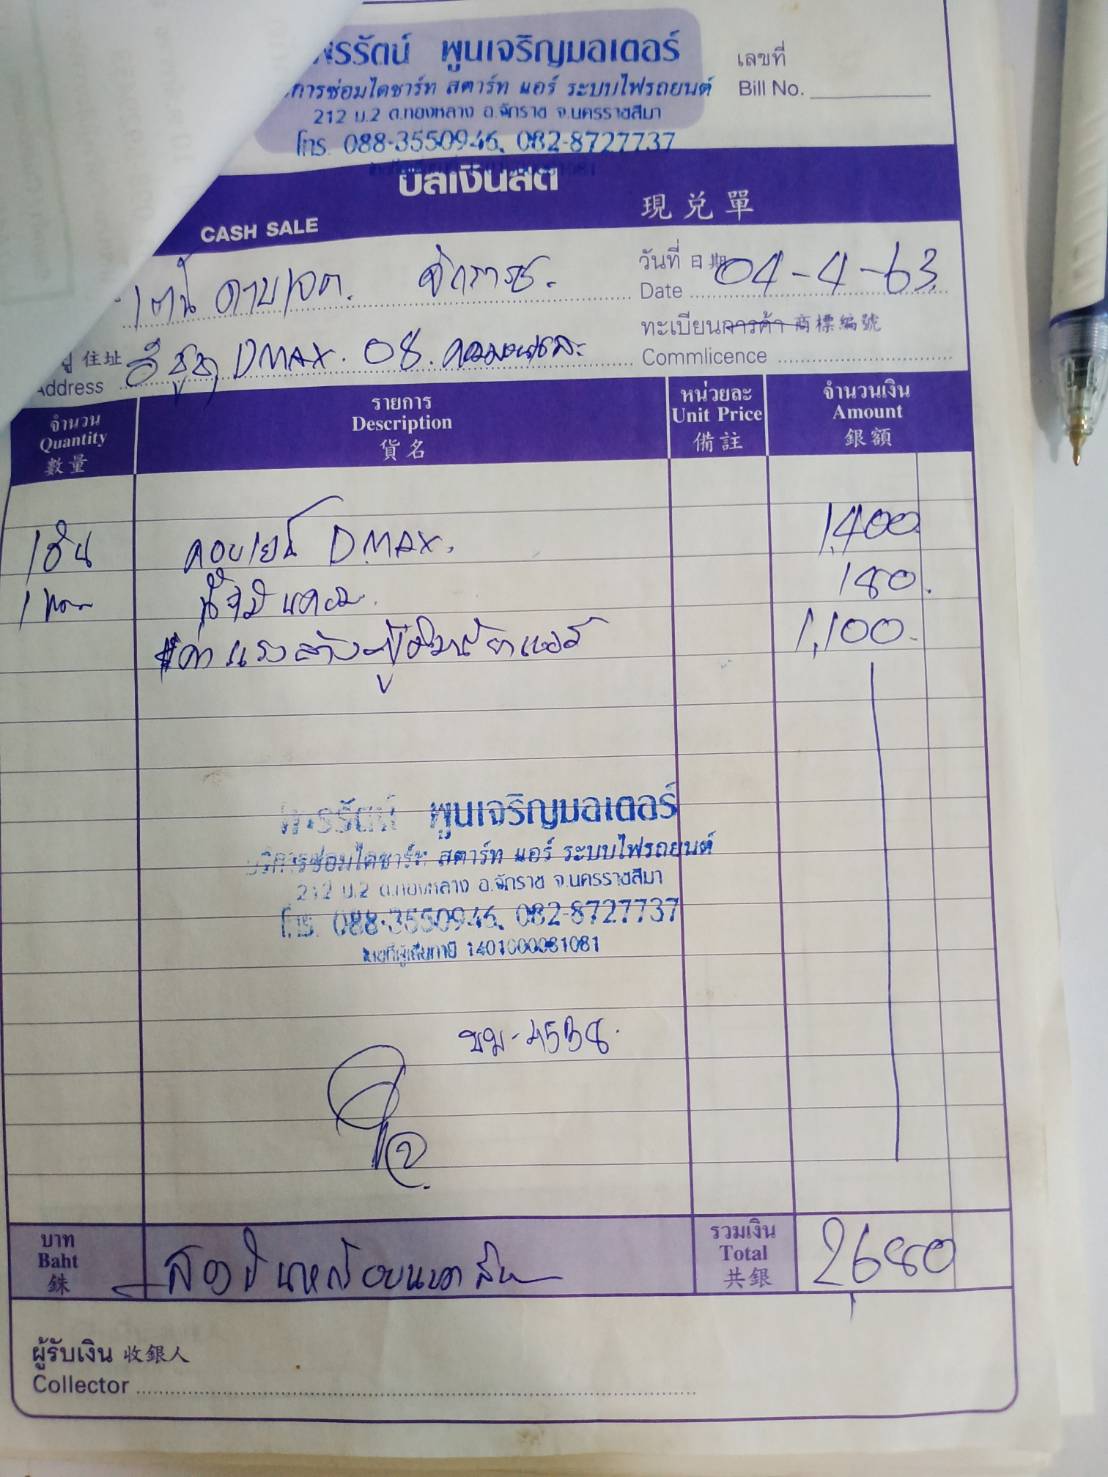 พรรัตน์ พูนเจริญมอเตอร์
การซ่อมไดชาร์ท สตาร์ท แอร์ ระบบไฟรถยนต์
212 ม.2 ต.ทองหลาง อ.จักราช จ.นครราชสีมา
โทร. 088-3550946, 082-8727737
เลขที่
Bill No.
บิลเงินสด
CASH SALE 現兌單
จักราช.
วันที่ 日期 04-4-63
Date
ทะเบียนการค้า 商標編號
Commlicence
住址
Address
อีซูซุ DMAX. 08.
จำนวน
Quantity
數量
รายการ
Description
貨名
หน่วยละ
Unit Price
備註
จำนวนเงิน
Amount
銀額
1 อัน คอยเย็น DMAX. 1,400
1 180.
ค่าแรงล้างตู้ 1,100.
พรรัตน์ พูนเจริญมอเตอร์
บริการซ่อมไดชาร์ท สตาร์ท แอร์ ระบบไฟรถยนต์
212 ม.2 ต.ทองหลาง อ.จักราช จ.นครราชสีมา
โทร. 088-3550946, 082-8727737
เลขที่ผู้เสียภาษี 1401000081081
ขม-4538.
บาท
Baht
銖
สองพันหกร้อยแปดสิบ
รวมเงิน
Total
共銀
2680
ผู้รับเงิน 收銀人
Collector